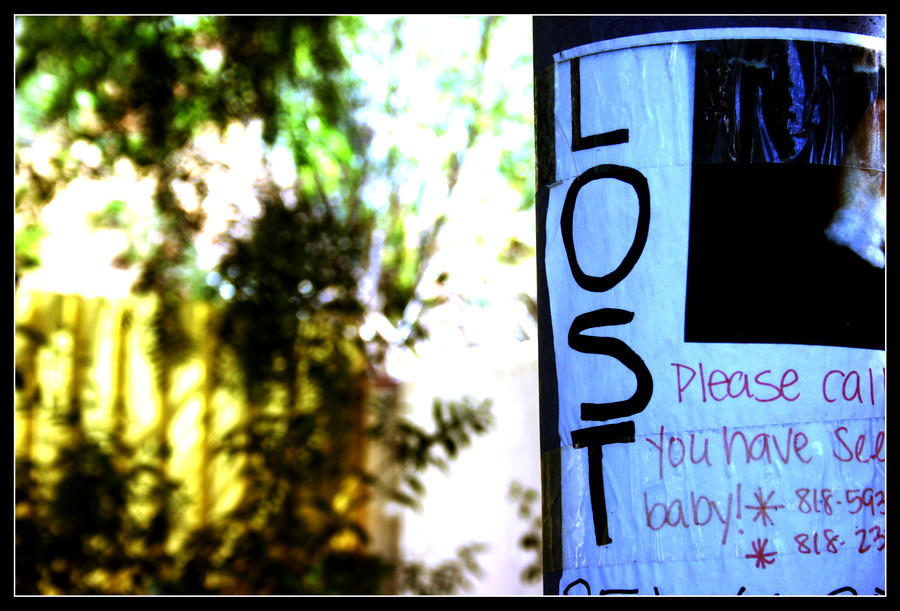 LOST
Please call
You have see
baby! * 818-593
* 818-23